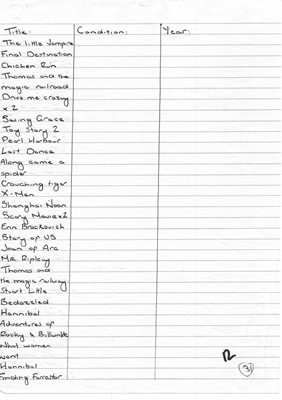 Title: Condition: Year:
The little Vampire
Final Destination
Chicken Run
Thomas and the
magic railroad
Drive me crazy
x 2
Saving Grace
Toy Story 2
Pearl Harbour
Last Dance
Along came a
spider
Crouching tiger
X-Men
Shanghai Noon
Scary Movie x2
Erin Brockovich
Story of US
Joan of Arc
MR Ripley
Thomas and
the magic railway
Stuart Little
Bedazzled
Hannibal
Adventures of
Rocky & Bullwinkle
What women
want
Hannibal
Finding Forrester